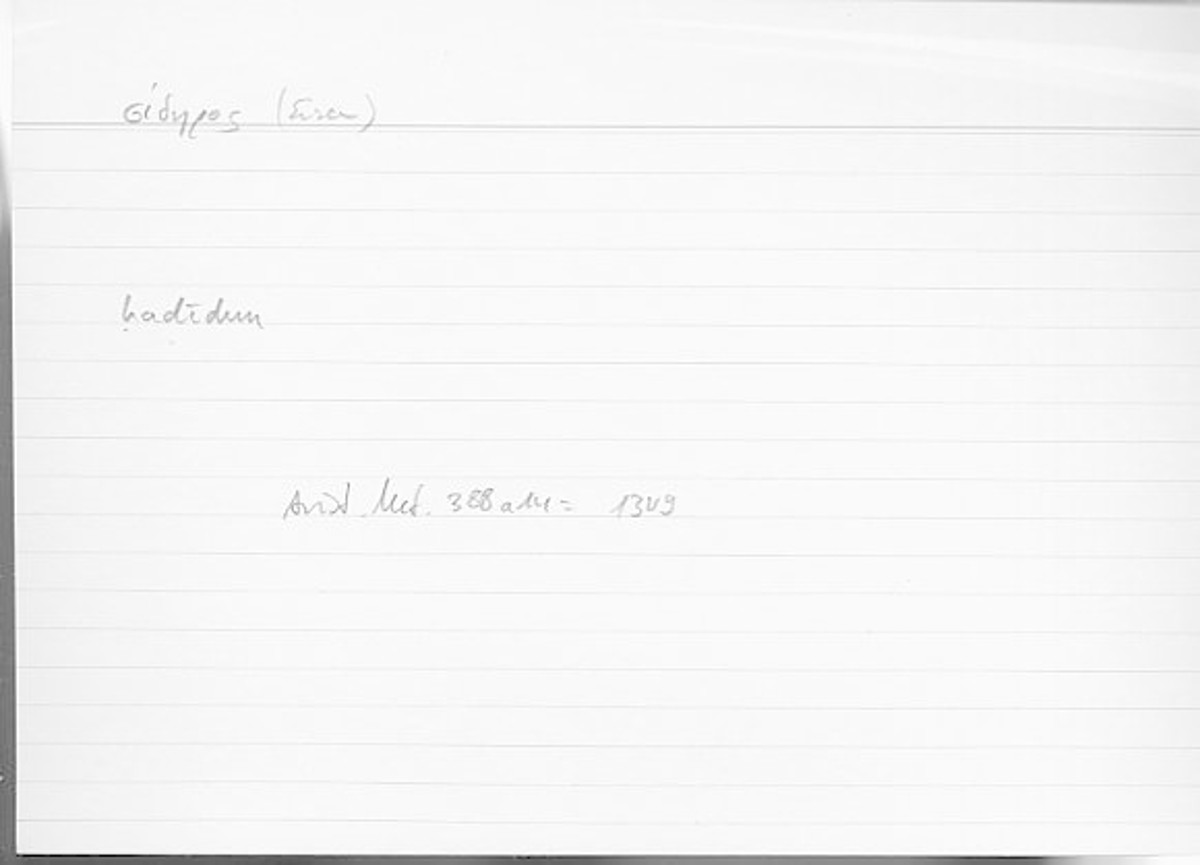 σίδηρος (Eisen)
ḥadīdun
Arist. Met. 388a14 = 1349